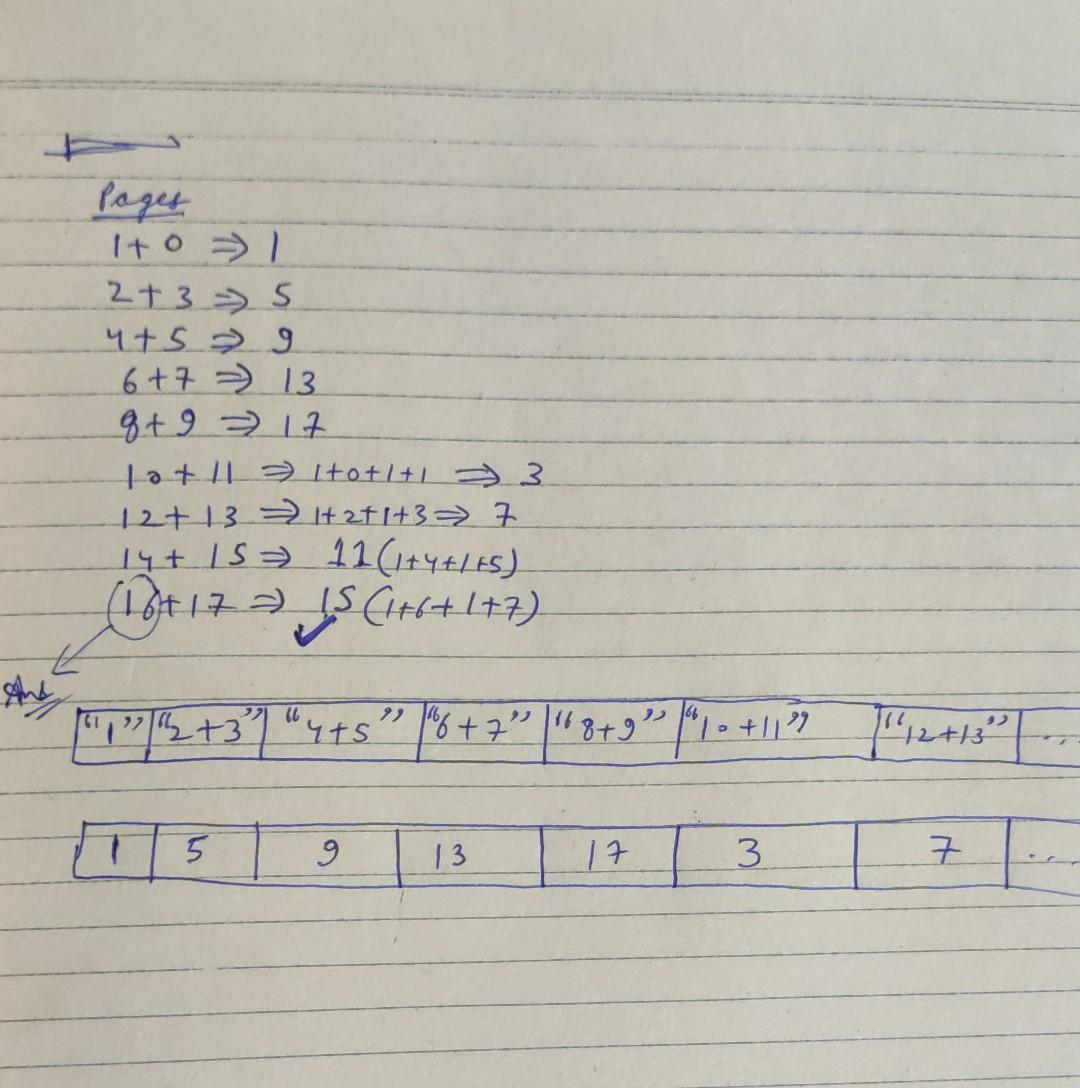 Pages
1+0 ⇒ 1
2+3 ⇒ 5
4+5 ⇒ 9
6+7 ⇒ 13
8+9 ⇒ 17
10+11 ⇒ 1+0+1+1 ⇒ 3
12+13 ⇒ 1+2+1+3 ⇒ 7
14+15 ⇒ 11(1+4+1+5)
16+17 ⇒ 15(1+6+1+7)
Ans
"1" "2+3" "4+5" "6+7" "8+9" "10+11" "12+13" ...
1 5 9 13 17 3 7 ...